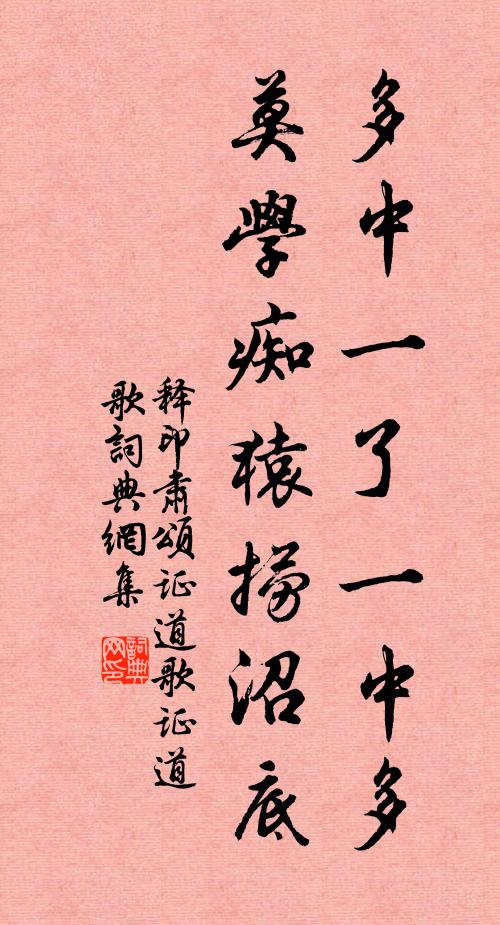 多中一了一中多
莫學痴猿撈沼底
释印肃頌证道歌证道
歌詞典網集
詞典
网印